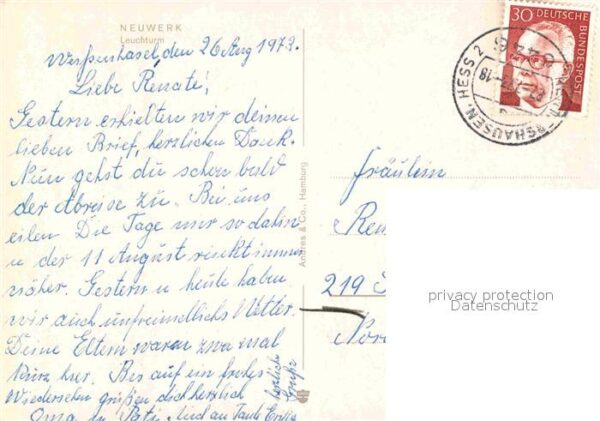 NEUWERK
Leuchturm
Weißenhasel, den 26 Aug 1972.
Liebe Renate!
Gestern erhielten wir deinen
lieben Brief, herzlichen Dank.
Nun gehst du schon bald
der Abreise zu. Bei uns
eilen Die Tage nur so dahin
u der 11 August rückt immer
näher. Gestern u heute haben
wir auch unfreundlichs Wetter.
Deine Eltern waren zwa mal
kurz hier. Bis auf ein frohes
Wiedersehen grüßen dich herzlich
Oma u Pati. und an Tante
herzliche
Grüße
Andres & Co., Hamburg
30 DEUTSCHE
BUNDESPOST
SHAUSEN, HESS 2
-18
Fräulein
Ren
219
Nor
privacy protection
Datenschutz